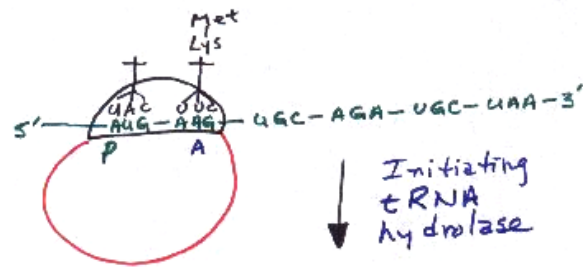 Met
Lys
UAC UUC
5'—AUG-AAG-UGC-AGA-UGC-UAA-3'
P A
Initiating
tRNA
hydrolase